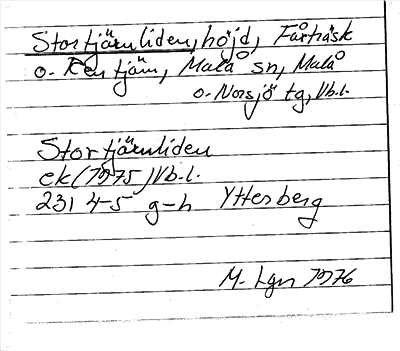 Stortjärnliden, höjd, Fårträsk
o. Rentjärn, Malå sn, Malå
o. Norsjö tg, Vb.l.
Stortjärnliden
ek (1975) Vb.l.
23I 4-5 g-h Ytterberg
M. Lgn 1976